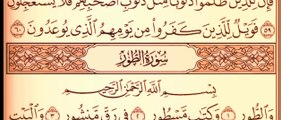 فَإِنَّ لِلَّذِينَ ظَلَمُوا۟ ذَنُوبًا مِّثْلَ ذَنُوبِ أَصْحَٰبِهِمْ فَلَا يَسْتَعْجِلُونِ
٥٩ فَوَيْلٌ لِّلَّذِينَ كَفَرُوا۟ مِن يَوْمِهِمُ ٱلَّذِى يُوعَدُونَ ٦٠
سُورَةُ الطُّورِ
بِسْمِ ٱللَّهِ ٱلرَّحْمَٰنِ ٱلرَّحِيمِ
وَٱلطُّورِ ١ وَكِتَٰبٍ مَّسْطُورٍ ٢ فِى رَقٍّ مَّنشُورٍ ٣ وَٱلْبَيْتِ